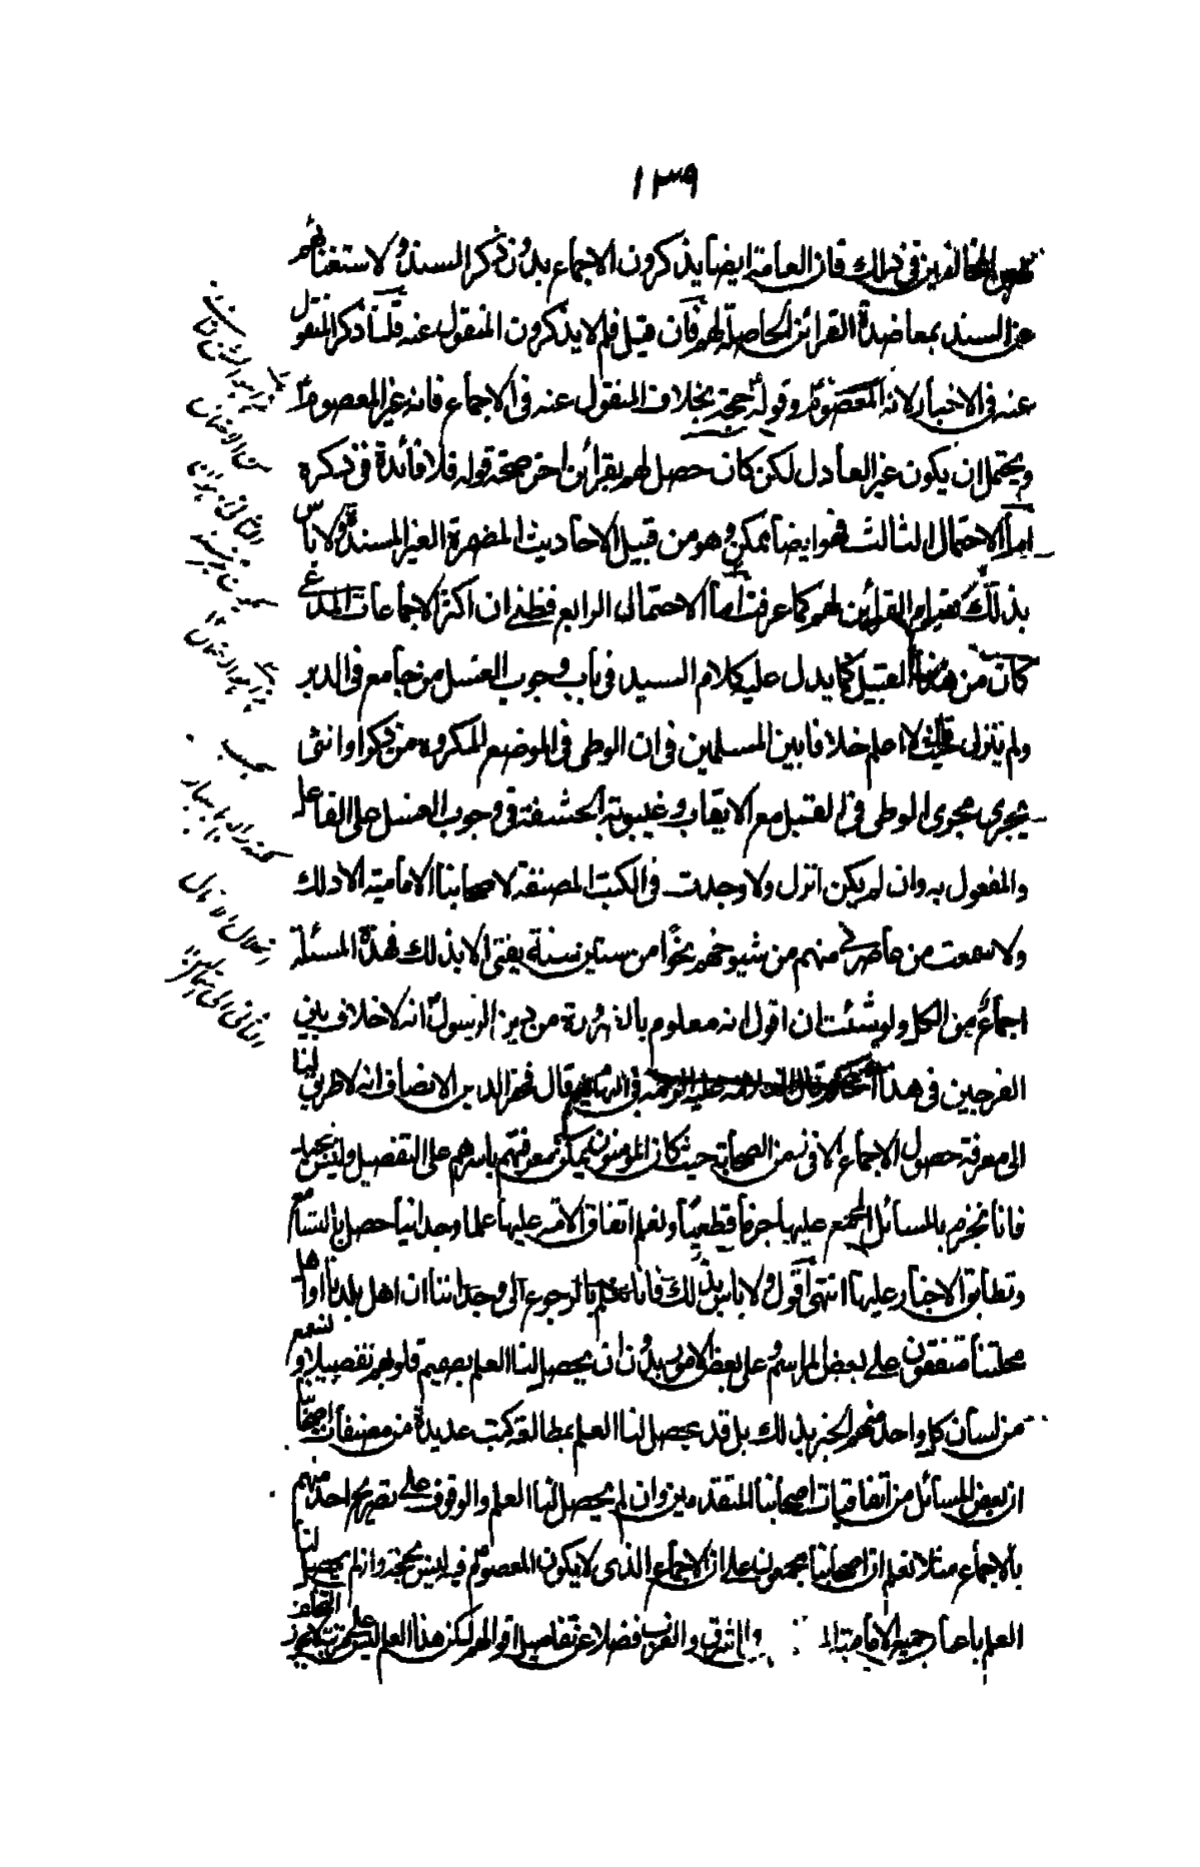 ١٣٩
المخالفين في ذلك فان العامة ايضا يذكرون الاجماع بدون ذكر السند ولاستغنائهم
عن السند بمعاضدة القرائن الحاصلة لهم فان قيل فلم لا يذكرون المنقول عنه قلنا ذكر المنقول
عنه في الاخبار لانه المعصوم وقوله حجة بخلاف المنقول عنه في الاجماع فانه غير المعصوم
ويحتمل ان يكون غير العادل لكن كان حصل لهم بقرائن اخر صحة قوله فلا فائدة في ذكره
اما الاحتمال الثالث فهو ايضا ممكن وهو من قبيل الاحاديث المضمرة الغير المسندة ولا باس
بذلك القرائن لهم كما عرفت اما الاحتمال الرابع فظني ان اكثر الاجماعات المدعى
كان من هذا القبيل كما يدل عليه كلام السيد في باب وجوب الغسل من جامع في الدبر
ولم ينزل حيث لا اعلم خلافا بين المسلمين في ان الوطى في الموضع المكروه من ذكر او انثى
يجرى مجرى الوطى في القبل مع الايقاب وغيبوبة الحشفة في وجوب الغسل على الفاعل
والمفعول به وان لم يكن انزل ولا وجدت في الكتب المصنفة لاصحابنا الامامية الا ذلك
ولا سمعت من عاصرني منهم من شيوخهم نحوا من ستين سنة يفتى الا بذلك فهذه المسئلة
اجماع من الكل ولو شئت ان اقول انه معلوم بالضرورة من دين الرسول انه لا خلاف بين
الفرجين في هذا الحكم قال فخر الدين الانصاف انه لا طريق لنا
الى معرفة حصول الاجماع الا في زمن الصحابة حيث كان المؤمنون يمكن معرفتهم باسرهم على التفصيل وليس بجيد
فانا نجزم بالمسائل المجمع عليها جزما قطعيا ونعلم اتفاق الامة عليها علما وجدانيا حصل بالتسامع
وتطابق الاخبار عليها انتهى اقول ولا باس بذلك فانا نعلم بالرجوع الى وجداننا ان اهل بلدنا او اهل
محلتنا متفقون على بعض المراسم وعلى بعض الامور بدون ان يحصل لنا العلم بصميم قلوبهم تفصيلا ونسمع
من لسان كل واحد منهم الخبر بذلك بل قد يحصل لنا العلم بمطالعة كتب عديدة من مصنفات اصحابنا
ان بعض المسائل من اتفاقيات اصحابنا المتقدمين وان لم يحصل لنا العلم والوقوف على تصريح احد منهم
بالاجماع مثلا نعلم ان اصحابنا مجمعون على ان الاجماع الذى لا يكون المعصوم فيه ليس بحجة وان لم يحصل لنا
العلم باعداد جميع الامامية والشرق والغرب فضلا عن تفاصيل اقوالهم لكن هذا العلم ليس على مرتبة لا يجوز